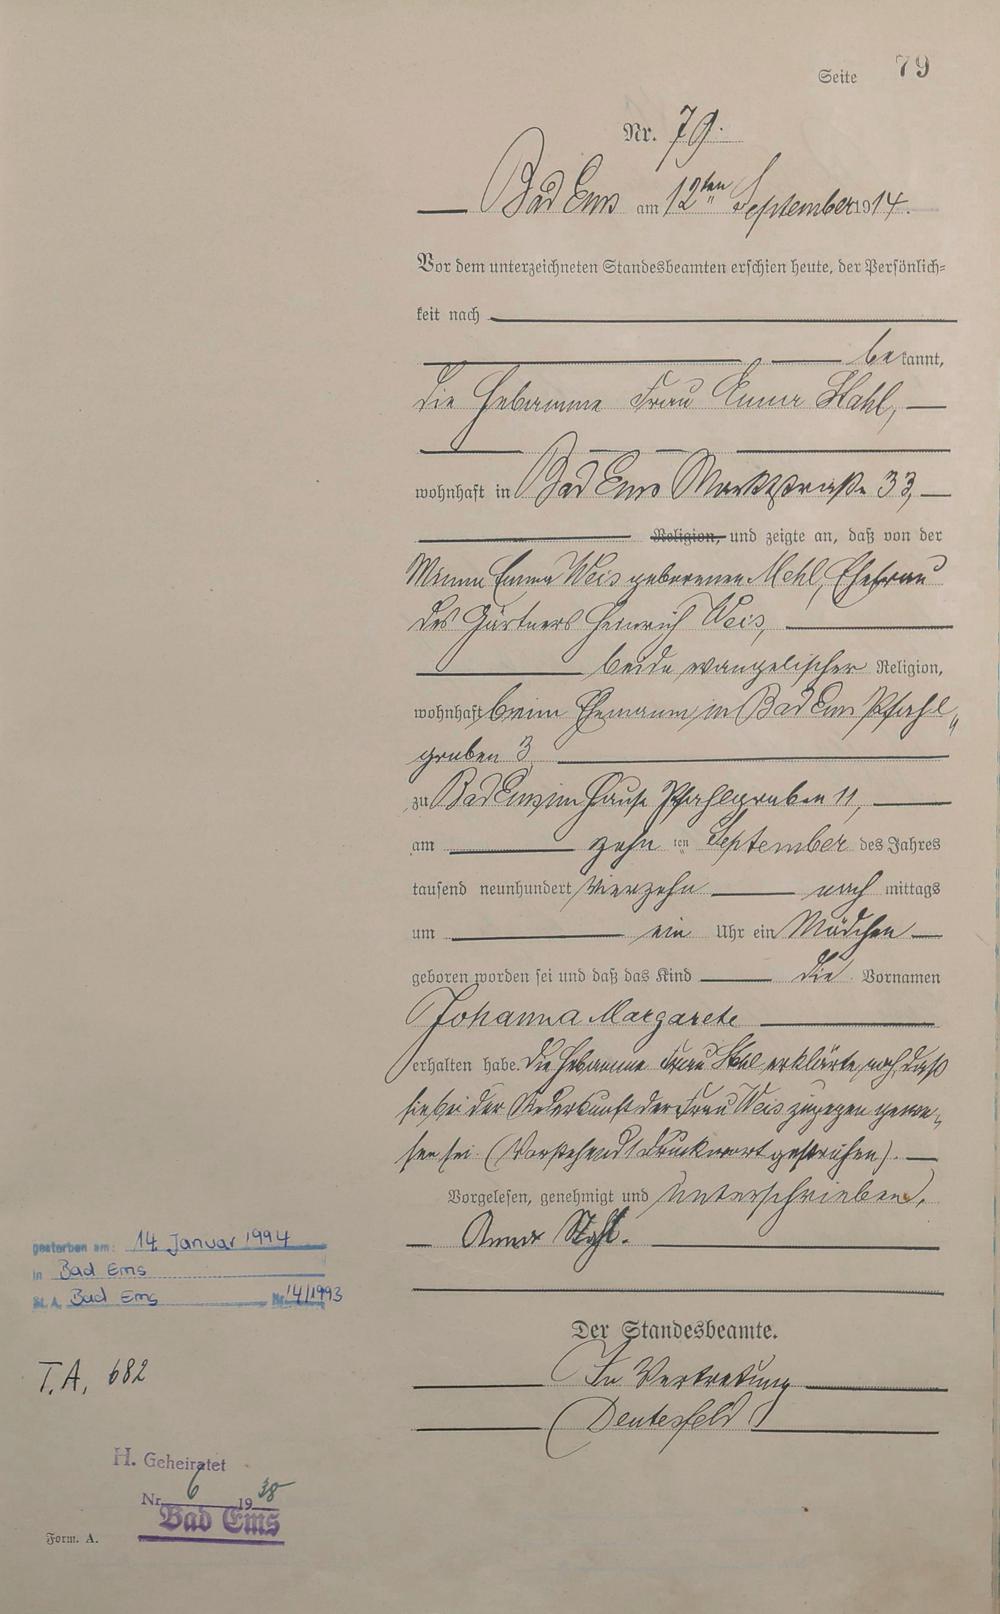 Seite 79
Nr. 79.
Bad Ems am 12ten September 1914.
Vor dem unterzeichneten Standesbeamten erschien heute, der Persönlich=
keit nach
bekannt,
die Hebamme Frau Anna Stahl,
wohnhaft in Bad Ems Marktstraße 33,
Religion, und zeigte an, daß von der
Minna Emma Weis geborenen Mehl, Ehefrau
des Gärtners Heinrich Weis,
beide evangelischer Religion,
wohnhaft beim Ehemann in Bad Ems Pfahl„
graben 3
zu Bad Ems im Hause Pfahlgraben 11,
am zehn ten September des Jahres
tausend neunhundert vierzehn nach mittags
um ein Uhr ein Mädchen
geboren worden sei und daß das Kind die Vornamen
Johanna Margarete
erhalten habe. Die Hebamme Frau Stahl erklärte noch, daß
sie bei der Niederkunft der Frau Weis zugegen gewe„
sen sei. (Vorstehend 1 Druckwort gestrichen).
Vorgelesen, genehmigt und unterschrieben.
Anna Stahl.
Der Standesbeamte.
In Vertretung
gestorben am: 14. Januar 1994
in Bad Ems
St. A. Bad Ems Nr. 14/1993
T.A. 682
H. Geheiratet
Nr. 6 1938
Bad Ems
Form. A.